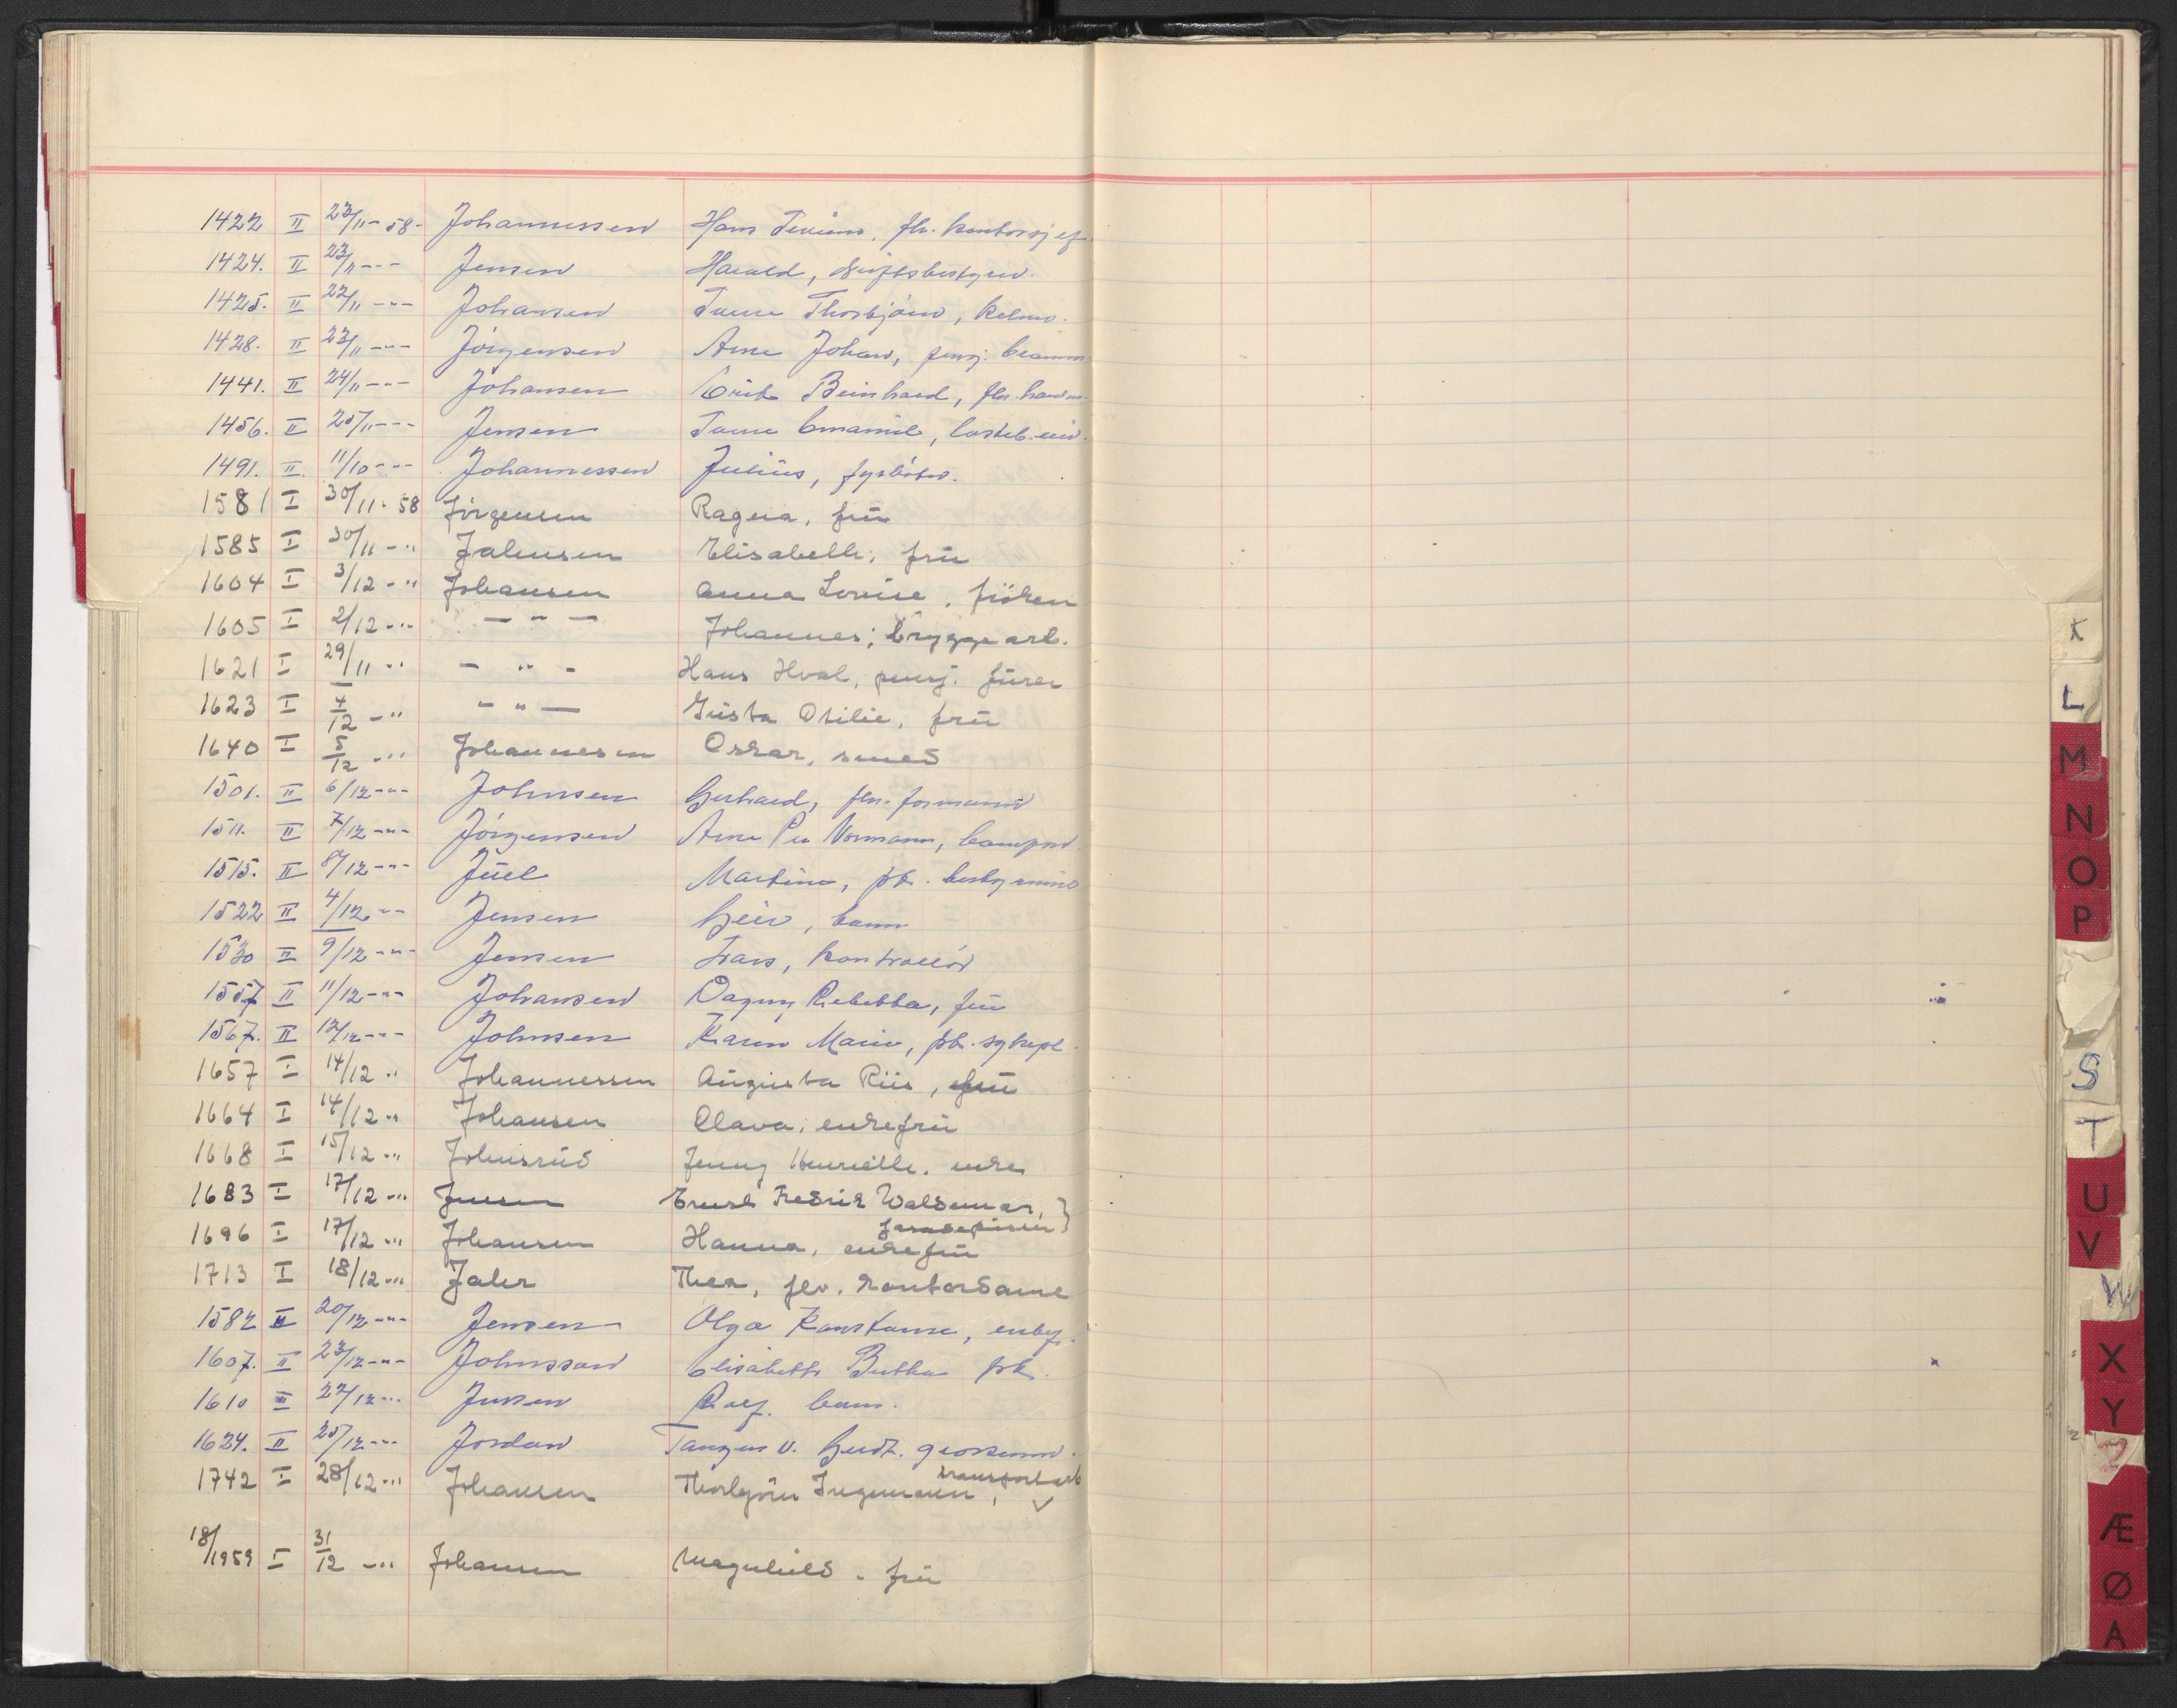 1422 II 23/11-58- Johannessen Hans fhv. kontorsjef
1424. II 23/11 -"- Jensen Harald, driftsbestyrer.
1425. II 22/11 -"- Johansen Thorbjørn, kelner.
1428. II 23/11 -"- Jörgensen Arne Johan, pensj.
1441. II 24/11 -"- Johansen Erik Bernhard, fhv.
1456. II 25/11 -"- Jensen Emanuel,
1491. II 11/10 -"- Johannessen Julius, fyrböter.
1581 I 30/11-58 Jörgensen Ragna, frü
1585 I 30/11 -" Jahnsen Elisabeth, frü
1604 I 3/12 -" Johansen Anna Lovise, fröken
1605 I 2/12 -" - " - Johannes; bryggearb.
1621 I 29/11 " - " - Hans Hval, pensj. fürer
1623 I 4/12 -" - " - Güsta Otilie, frü
1640 I 5/12 -" Johannesen Oskar, smed
1501. II 6/12 -"- Johnsen Gerhard, fhv. formann
1511. II 7/12 -"- Jörgensen Arne Per Normann,
1515. II 8/12 -"- Jüel Martine, fhv. bestyrerinne
1522 II 4/12 -"- Jensen Geir, barn
1530 II 9/12 -"- Jensen Frans, kontrollör
1557 II 11/12 -"- Johansen Dagny Rebekka, frü
1567. II 12/12 -"- Johnsen Karen Marie, sykepl.
1657 I 14/12 " Johannessen Aügüsta Riis, frü
1664 I 14/12 " Johansen Olava; enkefrü
1668 I 15/12 " Johnsrüd Jenny Henriette. enke
1683 I 17/12 -" Jensen Ernst Fredrik Waldemar, }
1696 I 17/12 " Johansen Hanna, enkefrü
1713 I 18/12 " Jahr Thea, fhv. kontordame
1582 II 20/12 -"- Jensen Olga Konstanse, enkef.
1607. II 23/12 -"- Johnsson Elisabeth Bertha frk.
1610 II 22/12 -"- Jensen Rolf. barn.
1624. II 25/12 -"- Jordan Tangen v. Gerdt. grosserer.
transportarb
1742 I 28/12 " Johansen Thorbjörn Ingemann, ✓
18/1959 I 31/12 -" Johansen Magnhild. frü
K
L
M
N
O
P
S
T
U
V
W
X
Y
Z
Æ
Ø
A